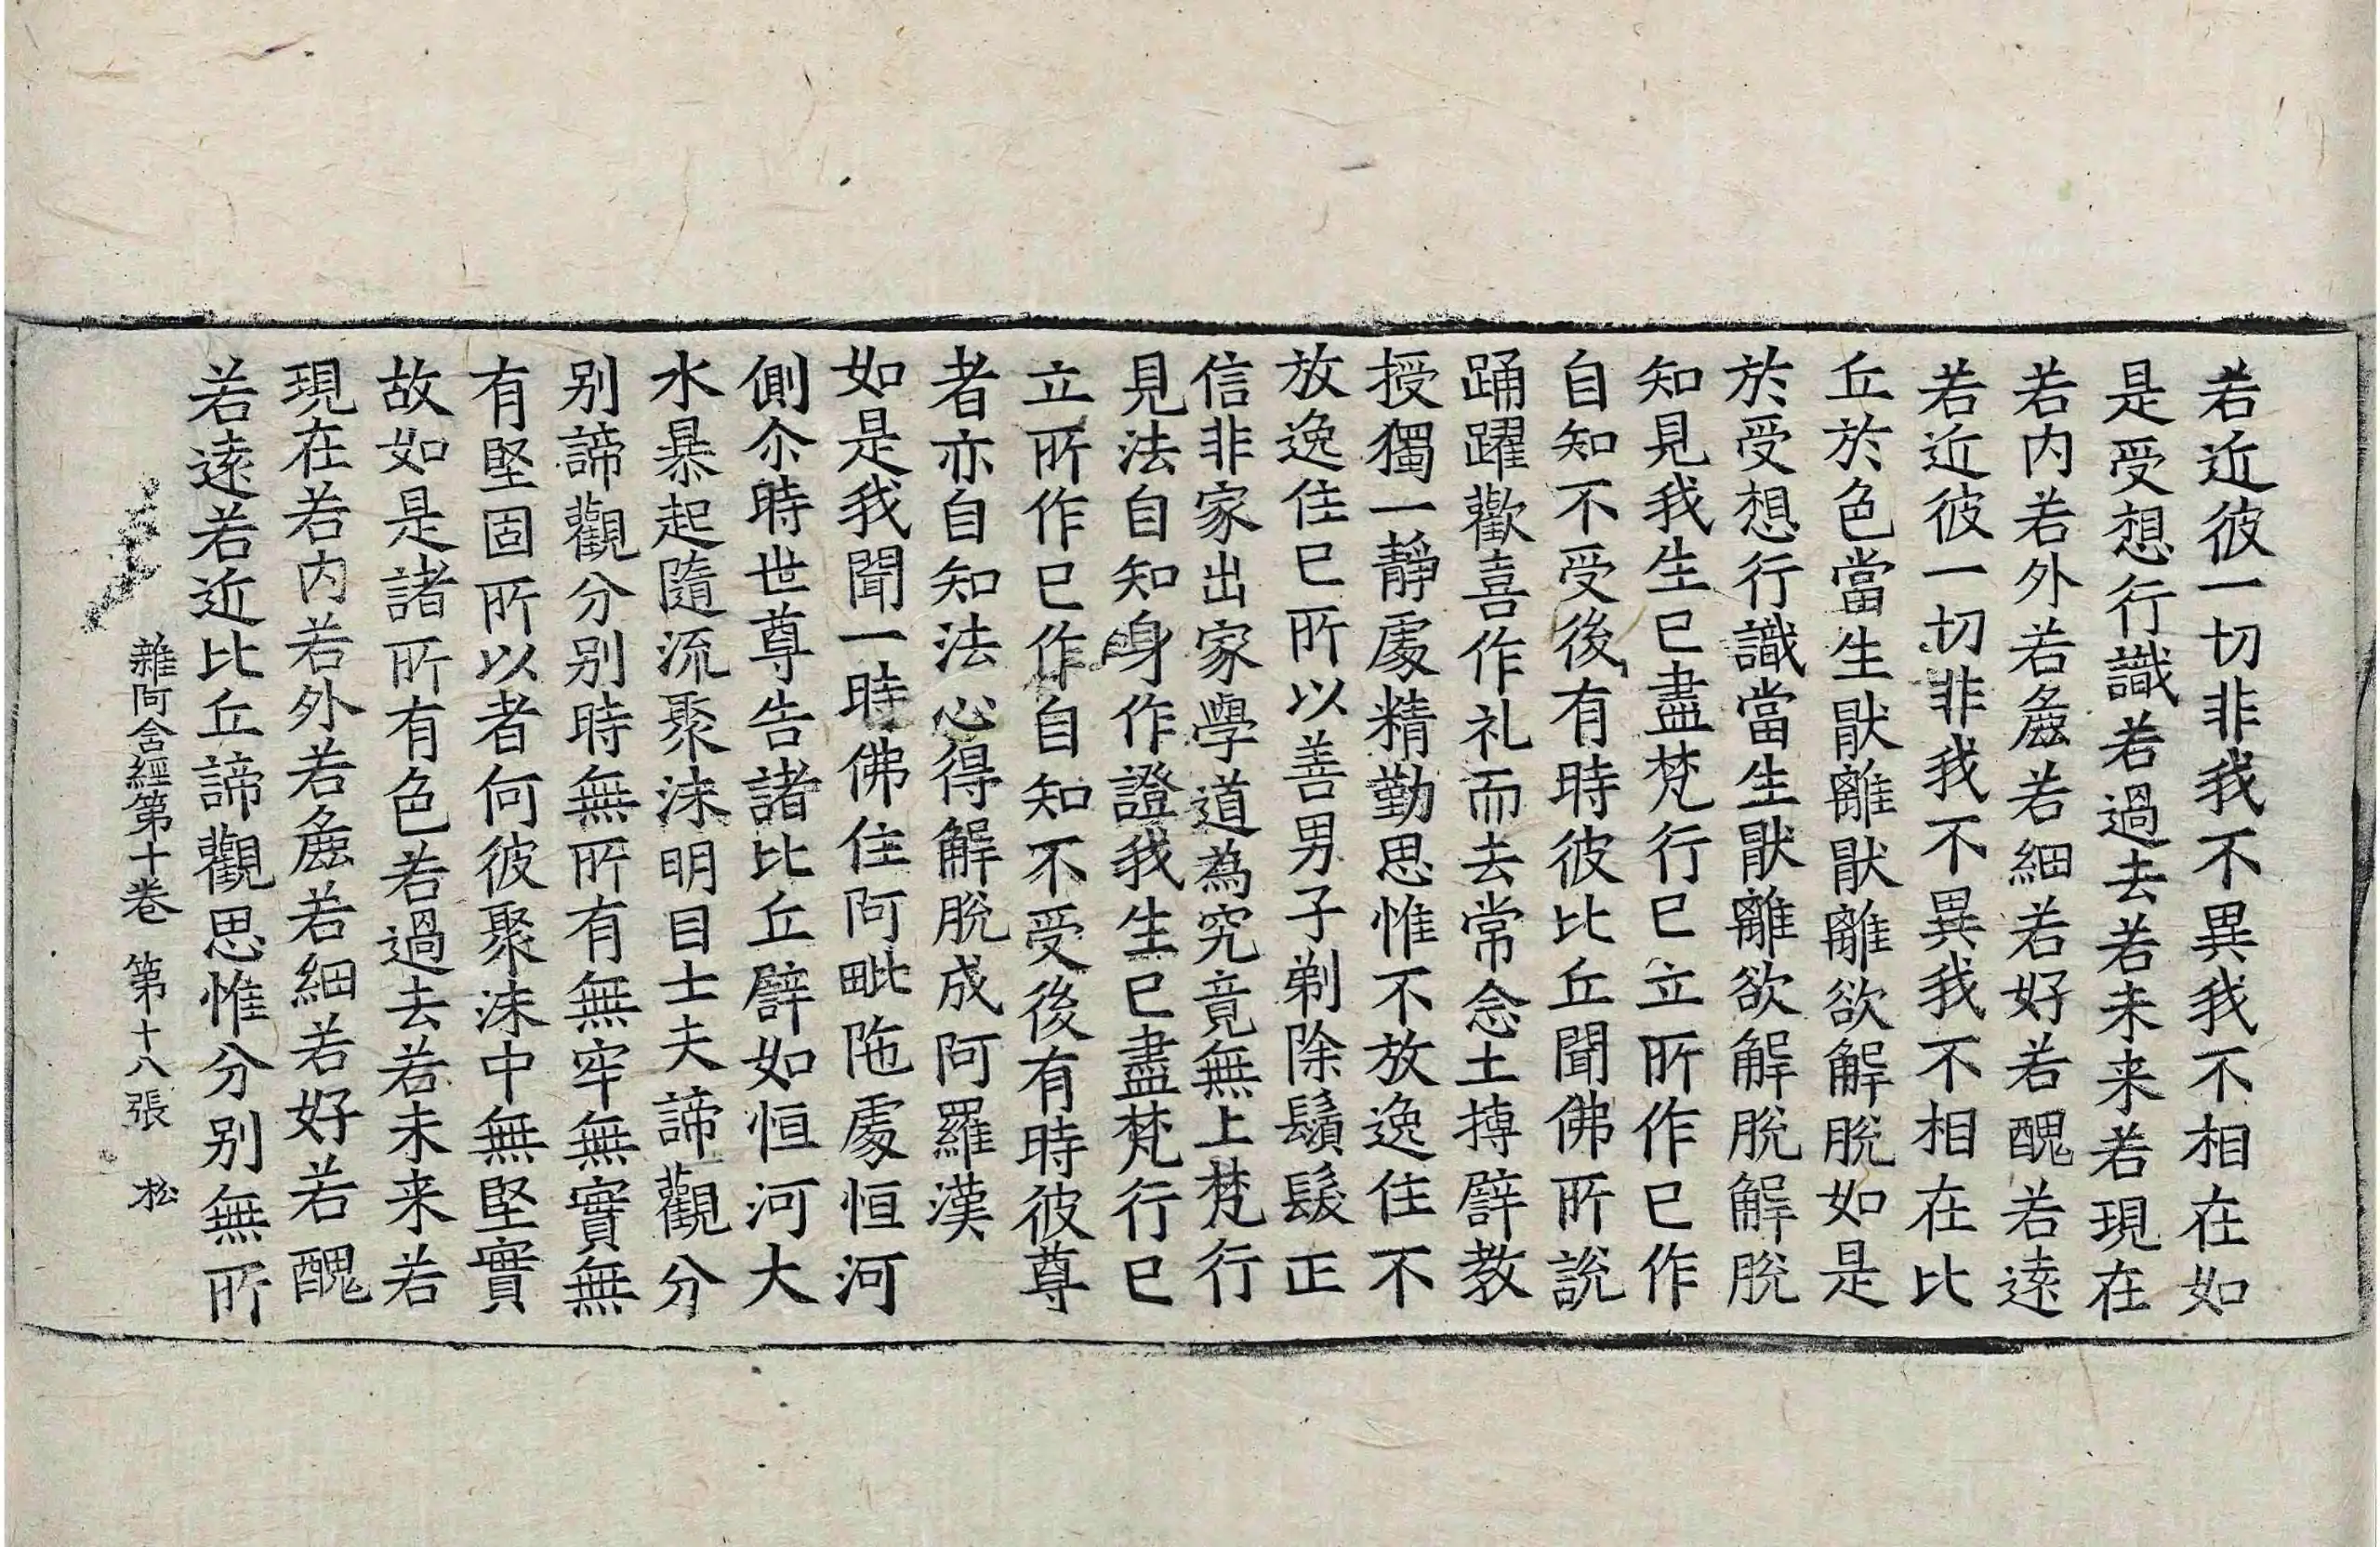 若近彼一切非我不異我不相在如
是受想行識若過去若未来若現在
若内若外若麁若細若好若醜若逺
若近彼一切非我不異我不相在比
丘於色當生猒離猒離欲解脫如是
於受想行識當生猒離欲解脫解脫
知見我生已盡梵行已立所作已作
自知不受後有時彼比丘聞佛所說
踊躍歡喜作礼而去常念土摶譬教
授獨一靜處精勤思惟不放逸住不
放逸住已所以善男子剃除鬚髮正
信非家出家學道為究竟無上梵行
見法自知身作證我生已盡梵行已
立所作已作自知不受後有時彼尊
者亦自知法心得解脫成阿羅漢
如是我聞一時佛住阿毗陁處恒河
側尒時世尊告諸比丘譬如恒河大
水暴起隨流聚沫明目士夫諦觀分
别諦觀分别時無所有無牢無實無
有堅固所以者何彼聚沫中無堅實
故如是諸所有色若過去若未来若
現在若内若外若麁若細若好若醜
若逺若近比丘諦觀思惟分别無所
雜阿含經第十卷 第十八張 松